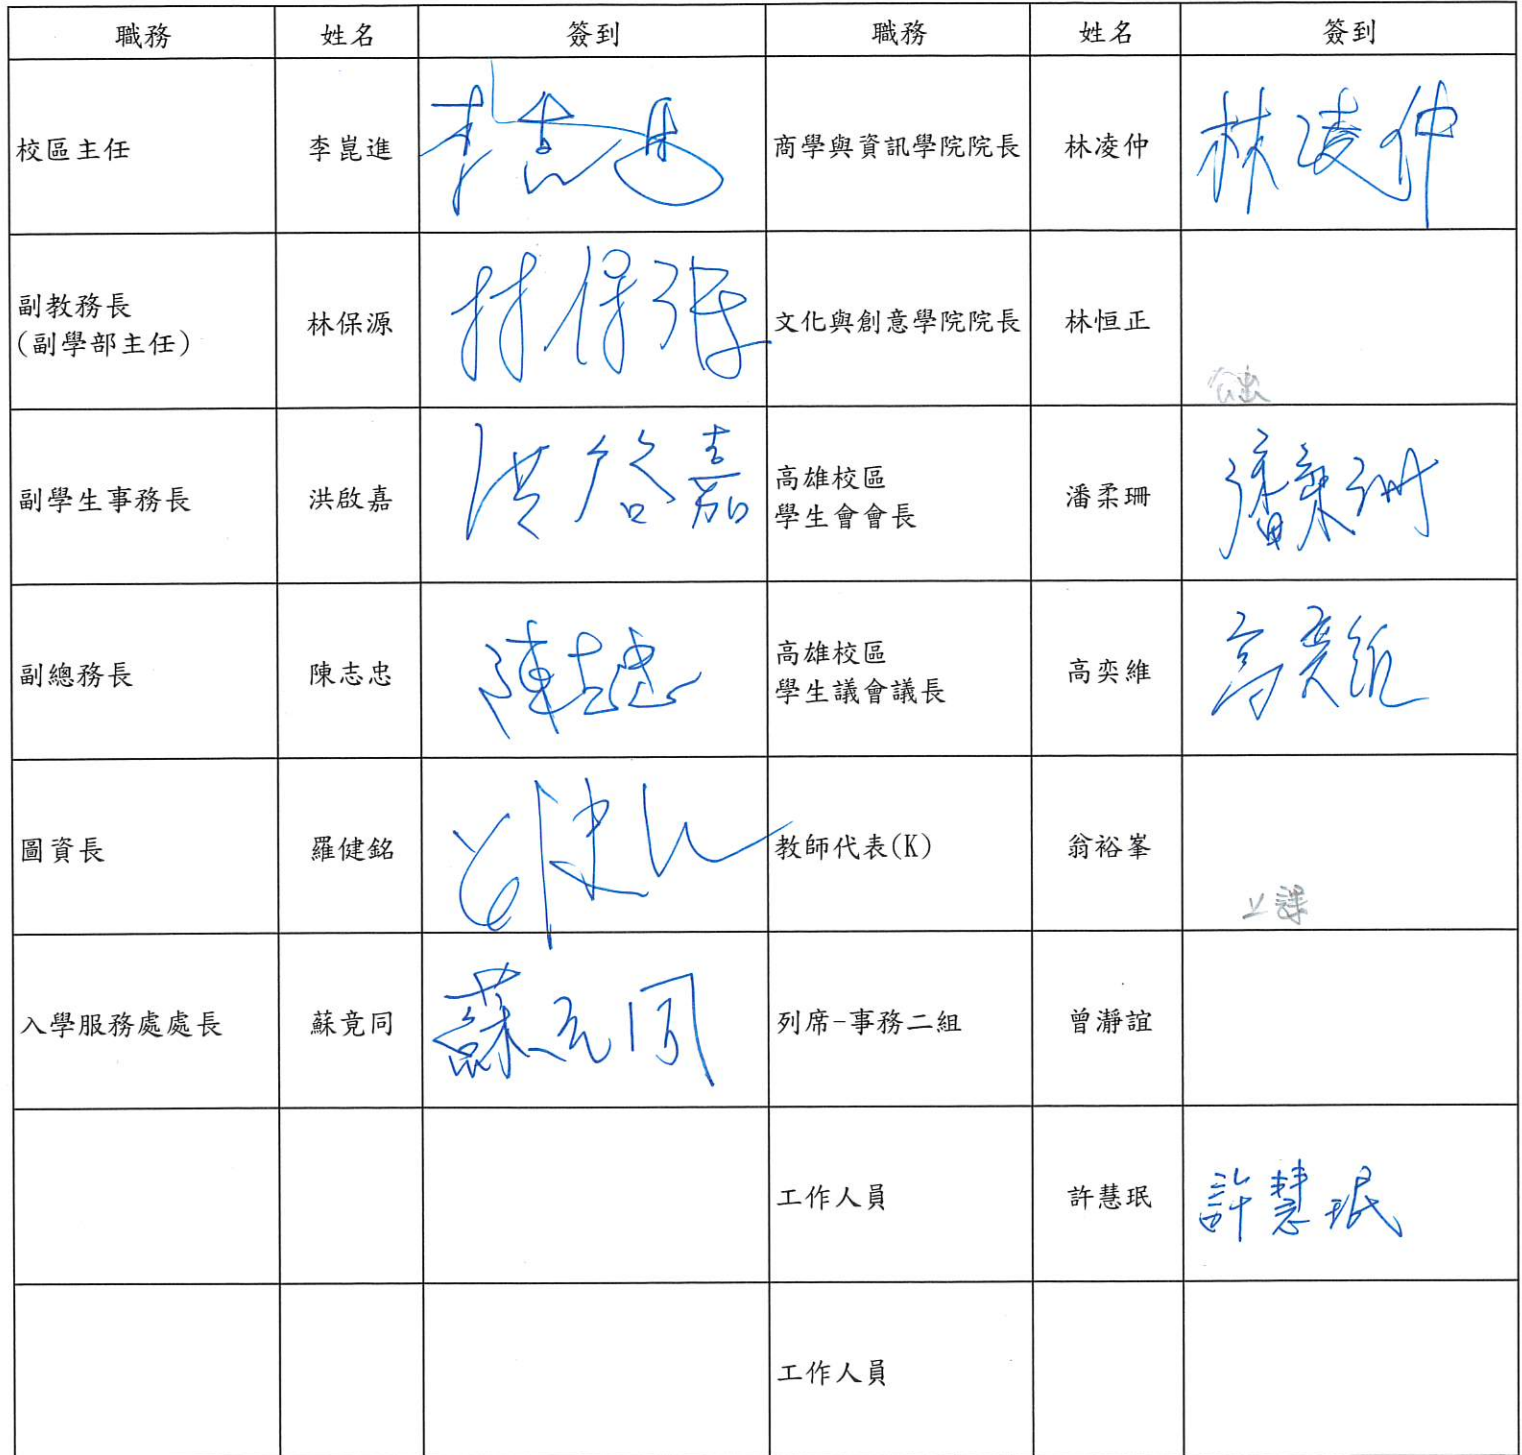 職務 姓名 簽到 職務 姓名 簽到
校區主任 李崑進 商學與資訊學院院長 林凌仲 林凌仲
副教務長
(副學部主任) 林保源 林保源 文化與創意學院院長 林恒正 公出
副學生事務長 洪啟嘉 洪啓嘉 高雄校區
學生會會長 潘柔珊 潘柔珊
副總務長 陳志忠 陳志忠 高雄校區
學生議會議長 高奕維 高奕維
圖資長 羅健銘 教師代表(K) 翁裕峯 上課
入學服務處處長 蘇竟同 蘇竟同 列席-事務二組 曾瀞誼
工作人員 許慧珉 許慧珉
工作人員